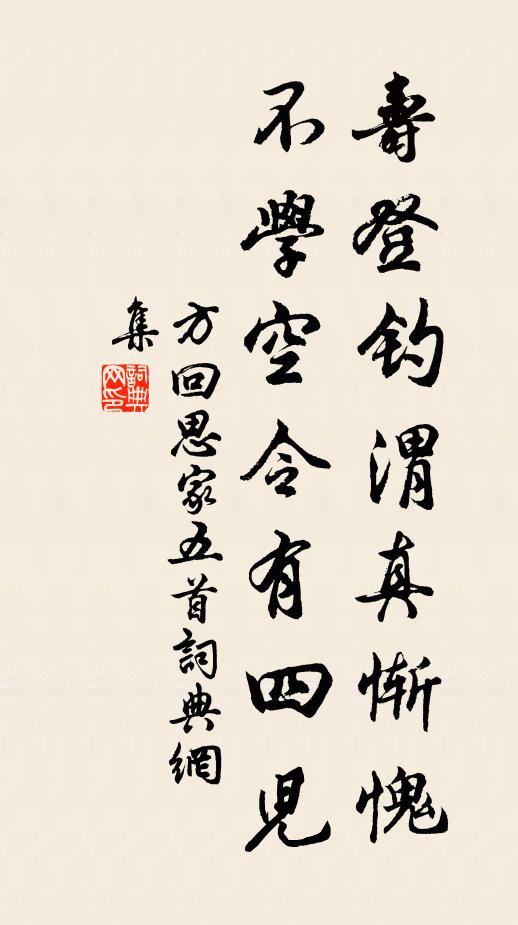 壽登釣渭真慚愧
不學空令有四兒
方回思家五首詞典網
集
詞典网印